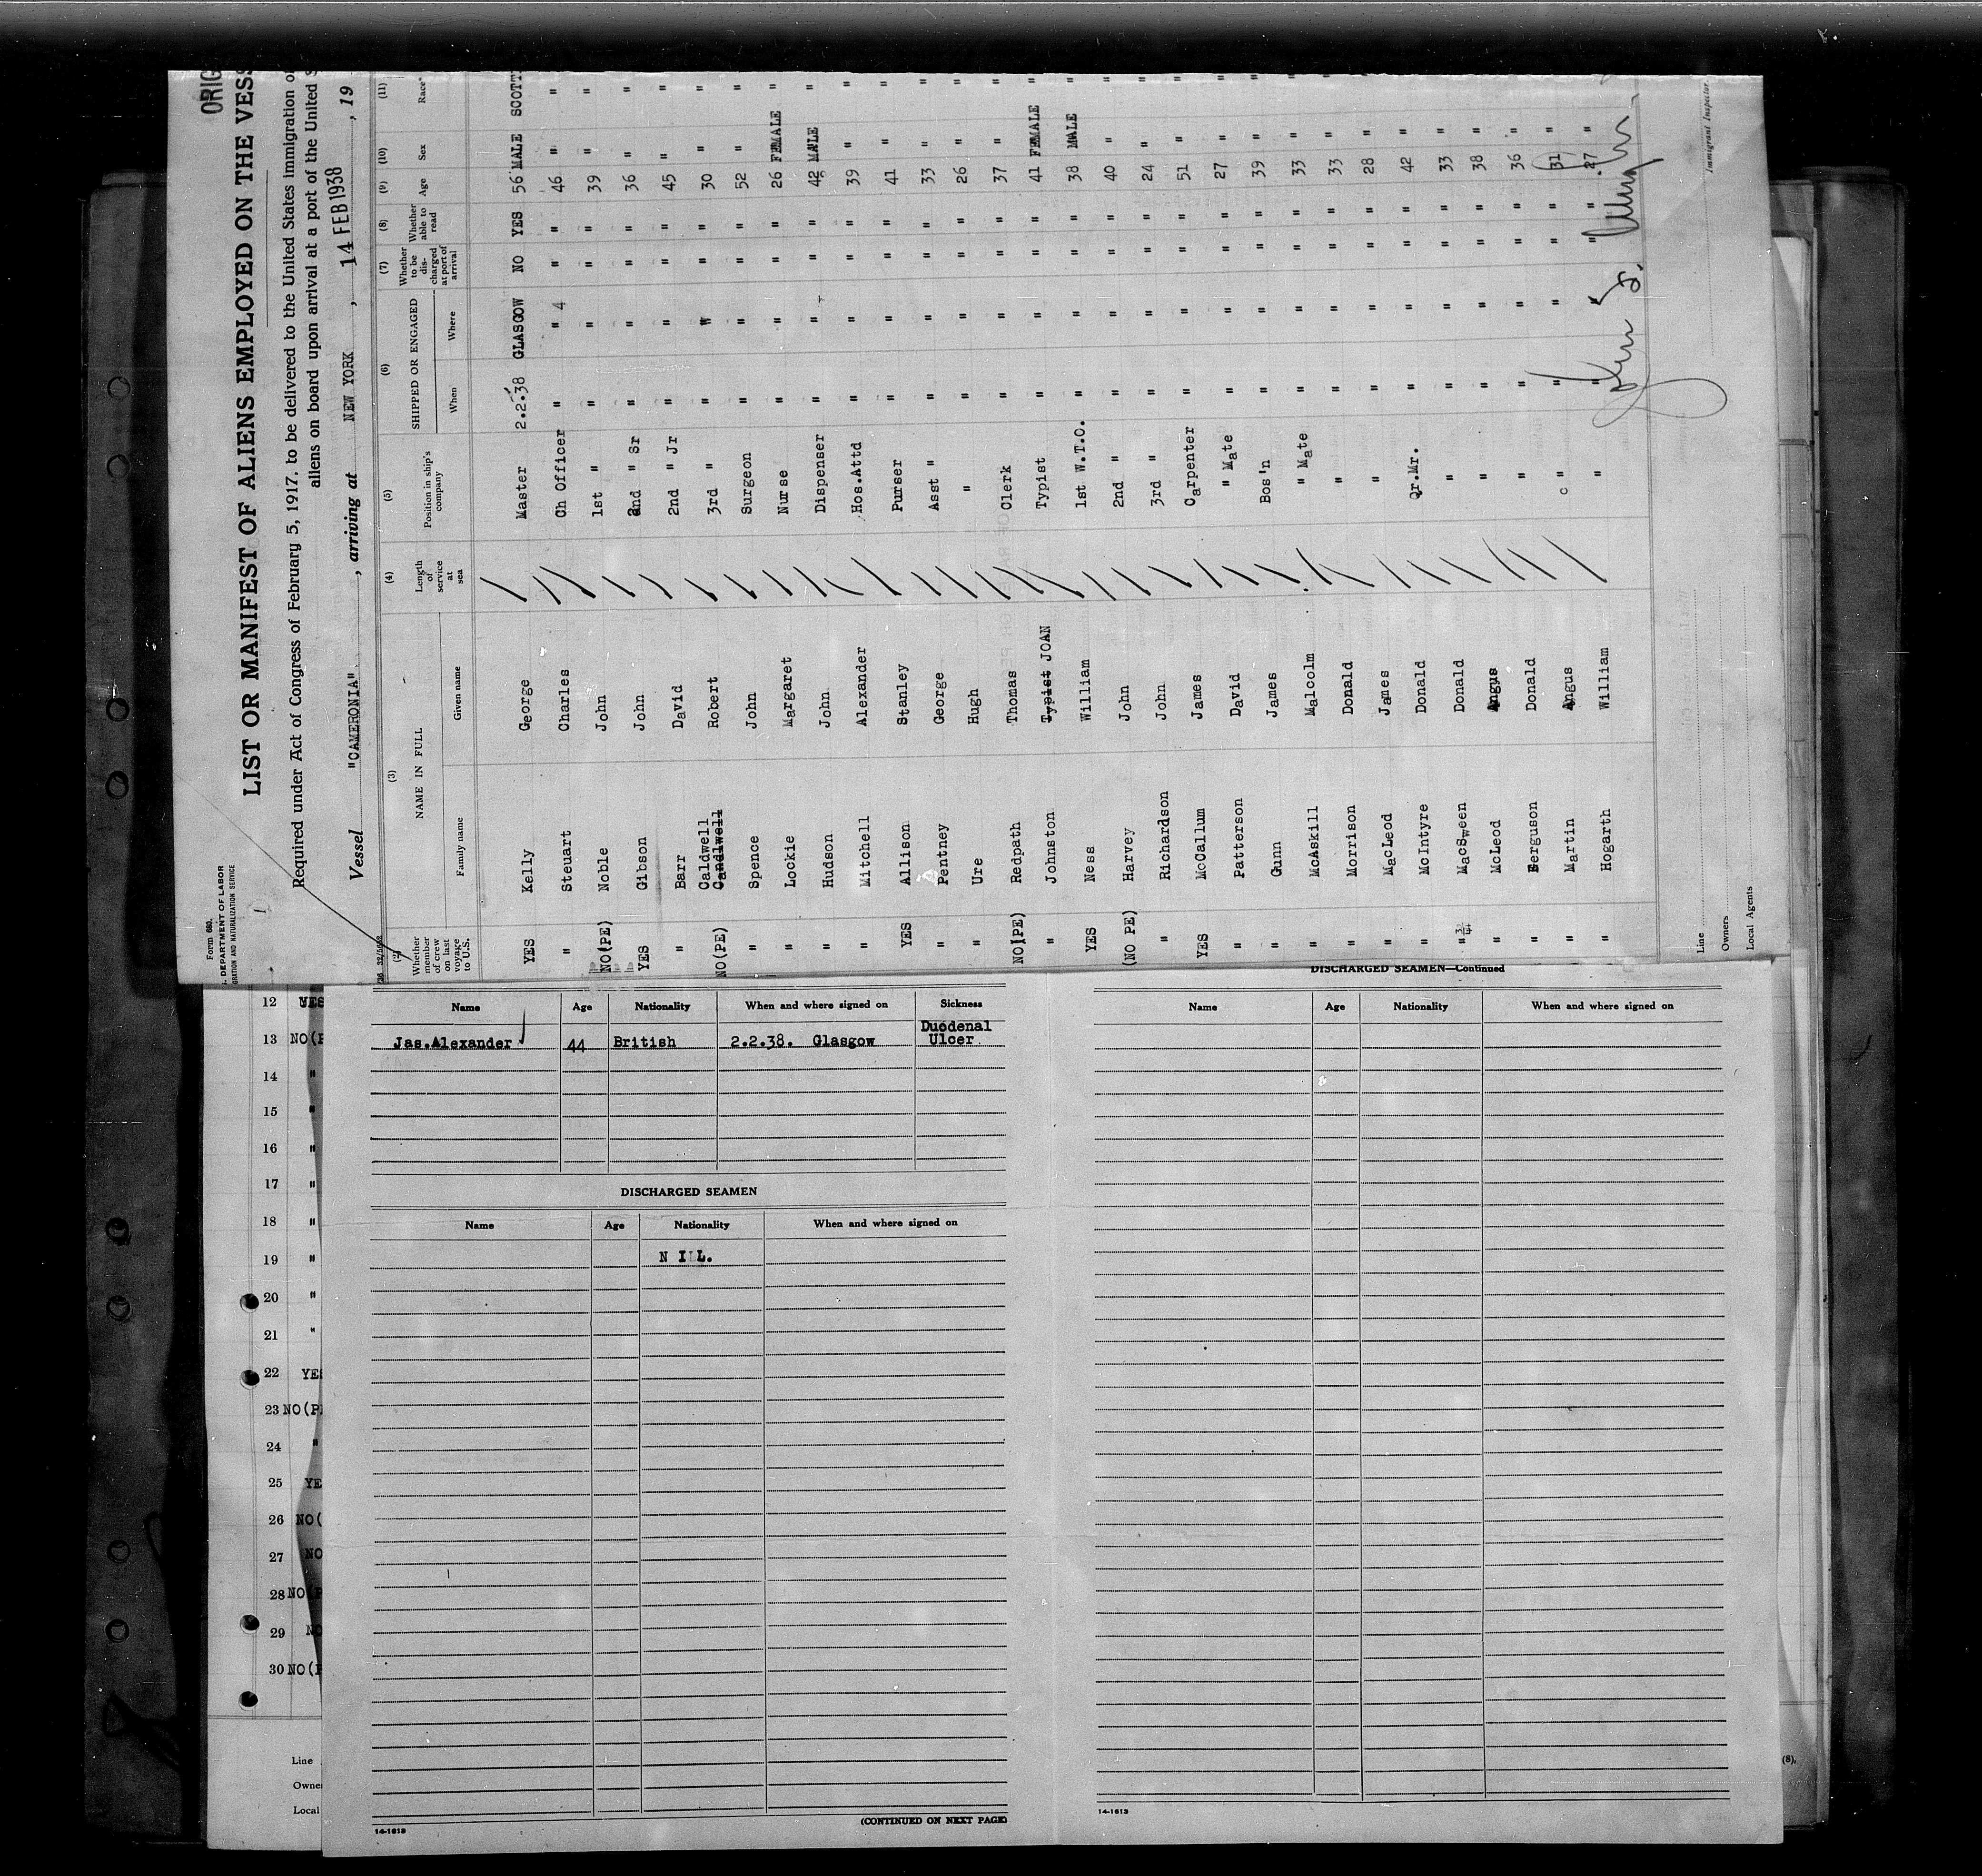 ORIG
Form 680.
DEPARTMENT OF LABOR
GRATION AND NATURALIZATION SERVICE
LIST OR MANIFEST OF ALIENS EMPLOYED ON THE VESS
Required under Act of Congress of February 5, 1917, to be delivered to the United States immigration o
aliens on board upon arrival at a port of the United S
Vessel "CAMERONIA", arriving at NEW YORK, 14 FEB 1938, 19
(2) (3) (4) (5) (6) (7) (8) (9) (10) (11)
Whether member of crew on last voyage to U.S. NAME IN FULL Length of service at sea Position in ship's company SHIPPED OR ENGAGED Whether to be discharged at port of arrival Whether able to read Age Sex Race*
Family name Given name When Where
YES Kelly George Master 2.2.38 GLASGOW NO YES 56 MALE SCOTT
" Steuart Charles Ch Officer " " 4 " " 46 " "
NO(PE) Noble John 1st " " " " " 39 " "
YES Gibson John 2nd " Sr " " " " 36 " "
" Barr David 2nd " Jr " " " " 45 " "
NO(PE) Caldwell Robert 3rd " " " " " 30 " "
" Spence John Surgeon " " " " 52 " "
" Lookie Margaret Nurse " " " " 26 FEMALE "
" Hudson John Dispenser " " " " 42 MALE "
" Mitchell Alexander Hos.Attd " " " " 39 " "
YES Allison Stanley Purser " " " " 41 " "
" Pentney George Asst " " " " " 33 " "
" Ure Hugh " " " " " 26 " "
NO(PE) Redpath Thomas Clerk " " " " 37 " "
" Johnston Typist JOAN Typist " " " " 41 FEMALE "
YES Ness William 1st W.T.O. " " " " 38 MALE "
(NO PE) Harvey John 2nd " " " " " 40 " "
" Richardson John 3rd " " " " " 24 " "
YES McCallum James Carpenter " " " " 51 " "
" Patterson David " Mate " " " " 27 " "
" Gunn James Bos'n " " " " 39 " "
" McAskill Malcolm " Mate " " " " 33 " "
" Morrison Donald " " " " " 33 " "
" MacLeod James " " " " " 28 " "
" McIntyre Donald Qr.Mr. " " " " 42 " "
" MacSween Donald " " " " " 33 " "
" McLeod Angus " " " " " 38 " "
" Ferguson Donald " " " " " 36 " "
" Martin Angus " " " " " 31 " "
" Hogarth William " " " " " 27 " "
Line
Owners
Local Agents
Immigrant Inspector.
12 YES
13 NO(P
14 "
15 "
16 "
17 "
18 "
19 "
20 "
21 "
22 YES
23 NO(P
24 "
25 YE
26 NO(
27 NO
28 NO(P
29 NO
30 NO(P
Line
Owne
Local
Name Age Nationality When and where signed on Sickness
Jas.Alexander 44 British 2.2.38. Glasgow Duodenal
Ulcer
DISCHARGED SEAMEN
Name Age Nationality When and where signed on
N I L.
(CONTINUED ON NEXT PAGE)
14-1613
DISCHARGED SEAMEN—Continued
Name Age Nationality When and where signed on
14-1613
(8),